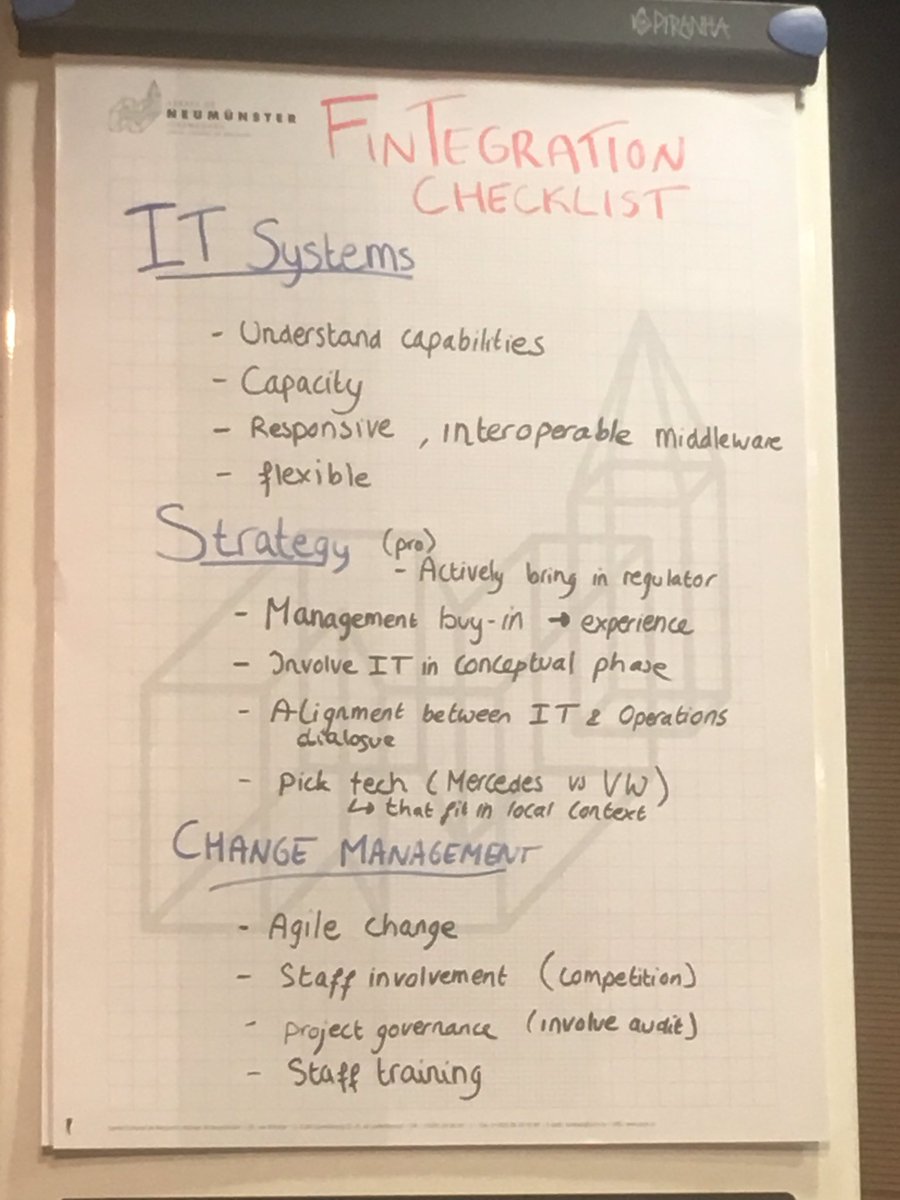 PIRANHA
NEUMÜNSTER
FINTEGRATION
CHECKLIST
IT Systems
- Understand capabilities
- Capacity
- Responsive , interoperable middleware
- flexible
Strategy (pro)
- Actively bring in regulator
- Management buy-in → experience
- Involve IT in conceptual phase
- Alignment between IT & Operations
dialogue
- Pick tech (Mercedes vs VW)
↳ that fit in local context
CHANGE MANAGEMENT
- Agile change
- Staff involvement (competition)
- project governance (involve audit)
- Staff training